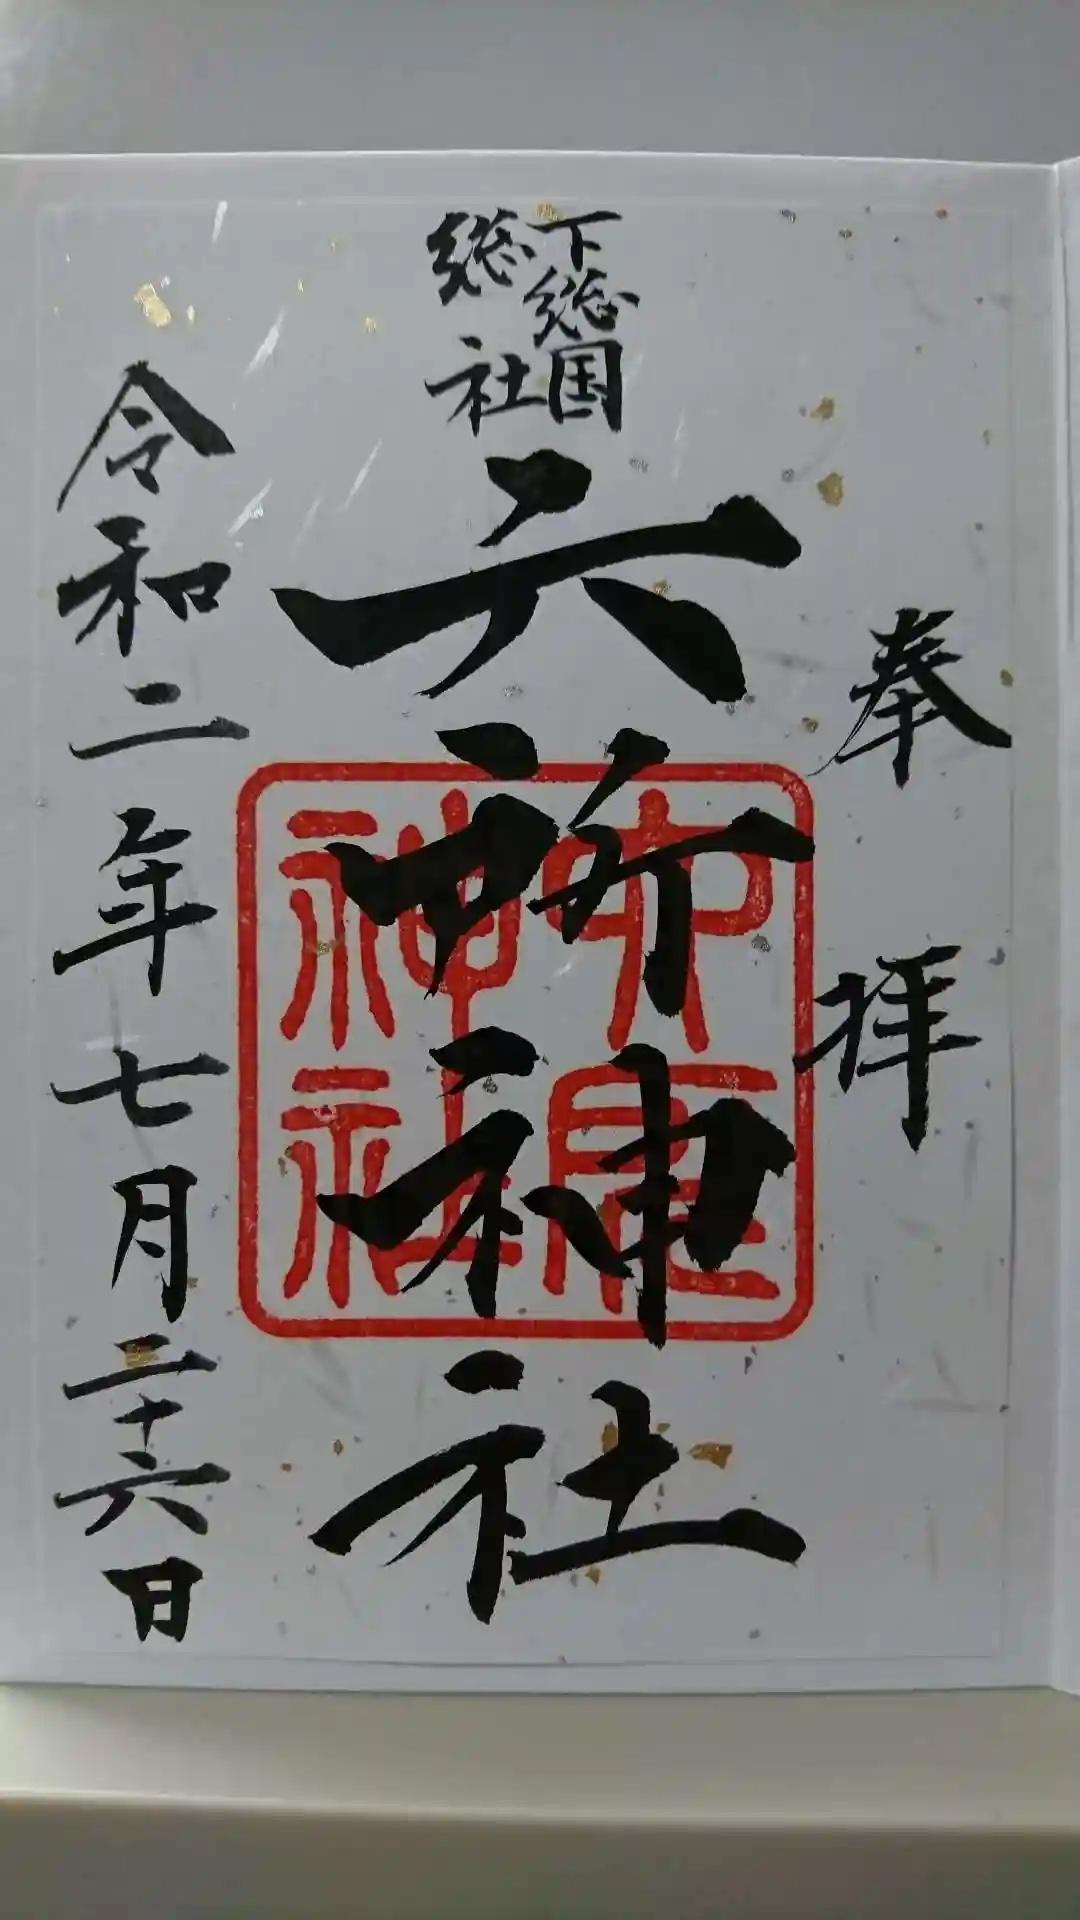 奉拝
下総国
総社
六所神社
六所
神社
令和二年七月二十六日